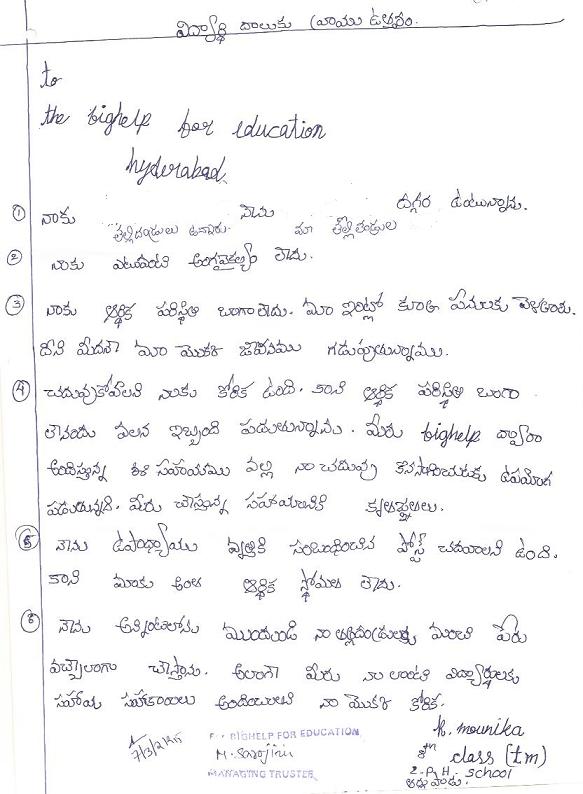 విద్యార్థి దాలుకు వ్రాయు ఉత్తరం.
to
the bighelp for education
hyderabad.
① నాకు తల్లిదండ్రులు ఉన్నారు. నేను మా తల్లితండ్రుల దగ్గర ఉంటున్నాను.
② నాకు ఎటువంటి అంగవైకల్యం లేదు.
③ నాకు ఆర్థిక పరిస్థితి బాగాలేదు. మా ఇంట్లో కూలి పనులకు వెళతారు.
దీని మీదనే మా యొక్క జీవనము గడుపుతున్నాము.
④ చదువుకోవాలని నాకు కోరిక ఉంది. కాని ఆర్థిక పరిస్థితి బాగా
లేనందు వలన ఇబ్బంది పడుతున్నాను. మీరు bighelp ద్వారా
అందిస్తున్న ఈ సహాయము వల్ల నా చదువు కొనసాగించుటకు ఉపయోగ
పడుతున్నది. మీరు చేస్తున్న సహాయానికి కృతజ్ఞతలు.
⑤ నాకు ఉపాధ్యాయ వృత్తికి సంబంధించిన పోస్ట్ చదవాలని ఉంది.
కాని మాకు అంత ఆర్థిక స్థోమత లేదు.
⑥ నేను అన్నింటిలోను ముందుండి నా తల్లిదండ్రులకు మంచి పేరు
వచ్చేలాగా చేస్తాను. అలాగే మీరు నా లాంటి విద్యార్థులకు
సహాయ సహకారాలు అందించాలని నా యొక్క కోరిక.
K. mounika
8th class (t.m)
Z.P.H. school
For BIGHELP FOR EDUCATION
M. Sarojini
MANAGING TRUSTEE